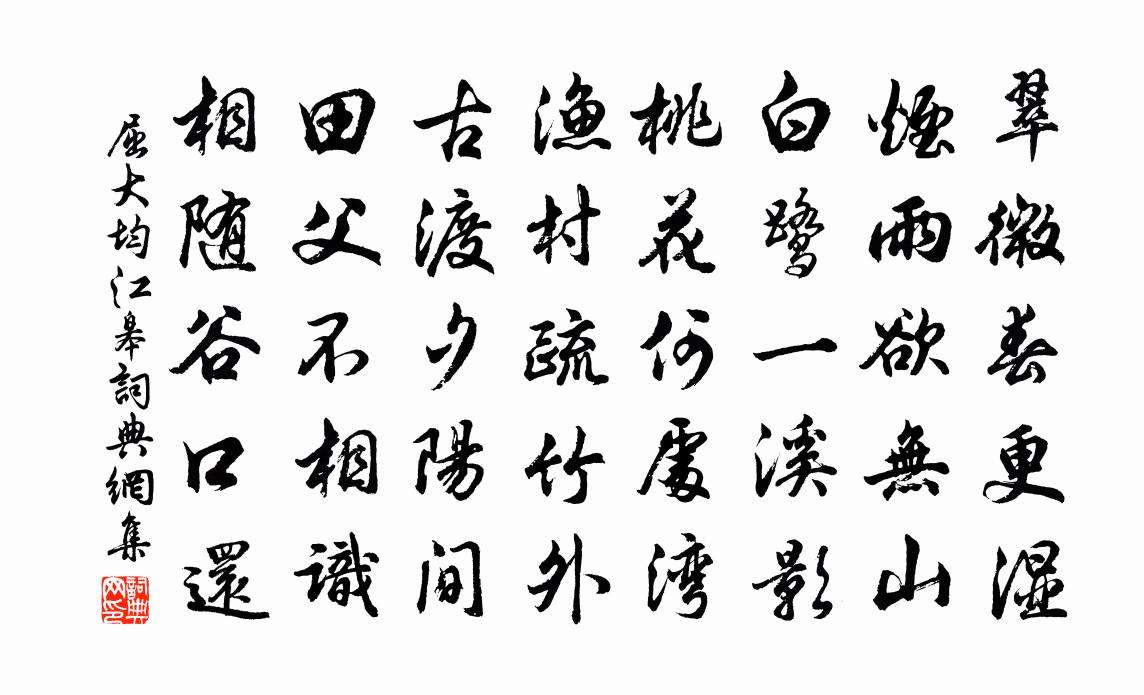 翠微春更湿
煙雨欲無山
白鹭一溪影
桃花何處湾
漁村疏竹外
古渡夕陽间
田父不相識
相随谷口還
屈大均江皋詞典網集
詞典网印